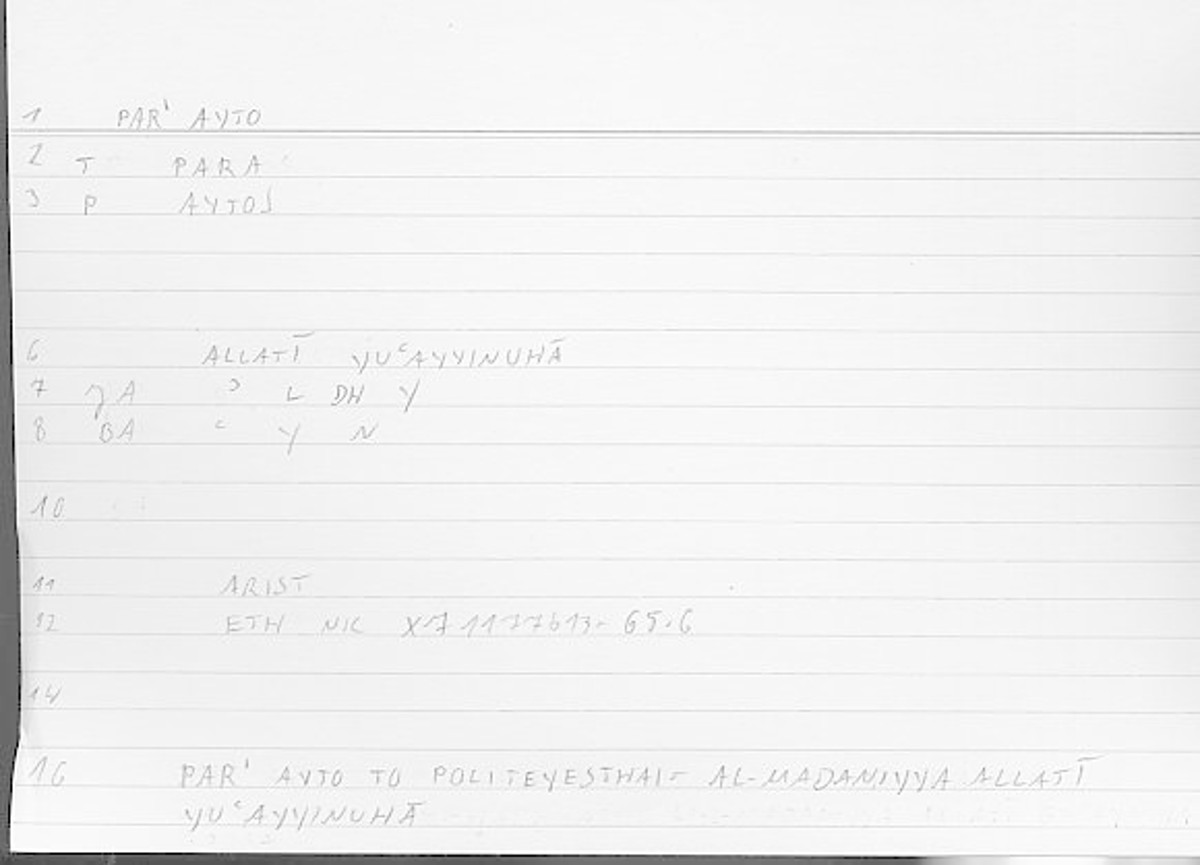 1 PAR' AYTO
2 T PARA
3 P AYTOS
6 ALLATĪ YUʿAYYINUHĀ
7 γA ʾ L DH Y
8 BA ʿ Y N
10
11 ARIST
12 ETH NIC X7 1177b13- 65.6
14
16 PAR' AYTO TO POLITEYESTHAI- AL-MADANIYYA ALLATĪ
YUʿAYYINUHĀ